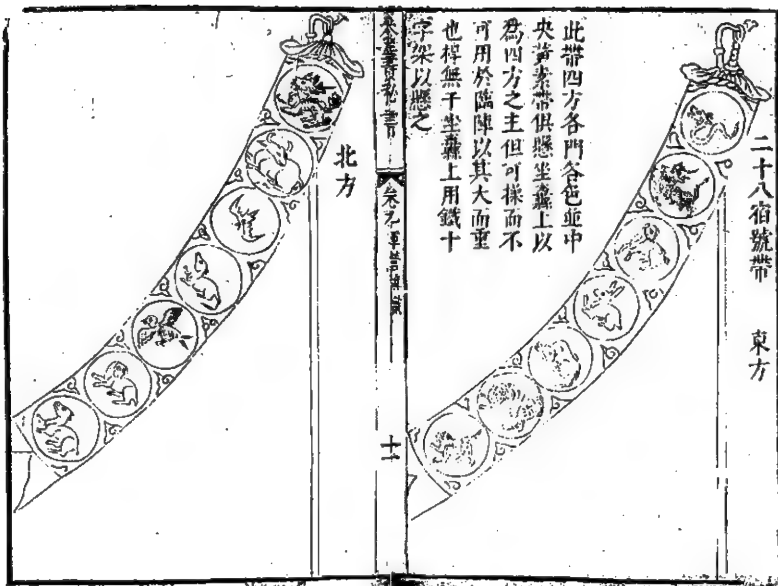 二十八宿號帶　東方
此帶四方各門各色並中
央黃素帶俱懸坐纛上以
爲四方之主但可操而不
可用於臨陣以其大而重
也桿無干坐纛上用鐵十
字架以懸之
十二
北方